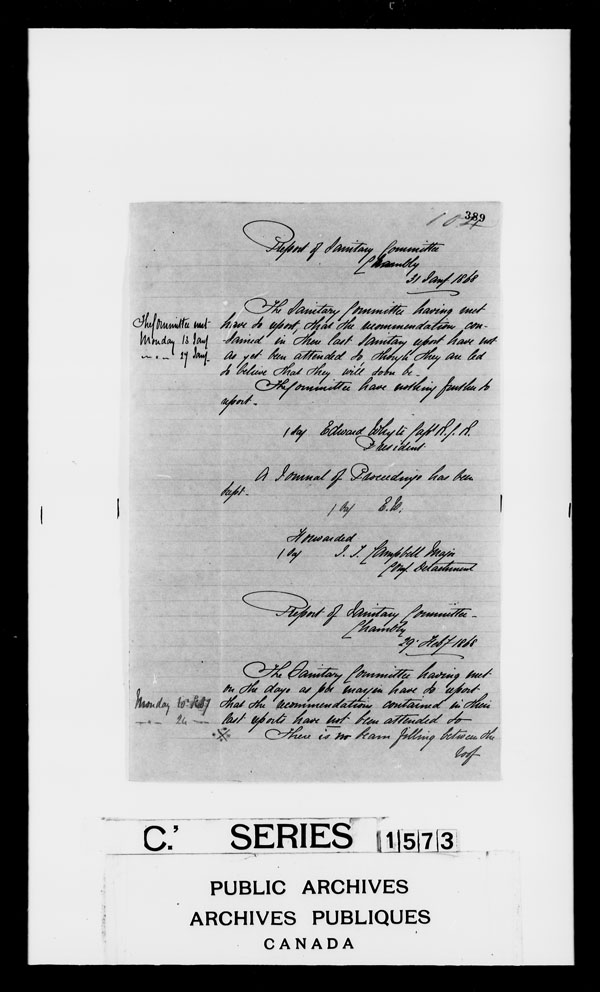 389
Report of Sanitary Committee
Chambly
31 Jany 1868
The Committee met
Monday 13 Jany
" " 27 Jany
The Sanitary Committee having met
have to report, that the recommendations con-
tained in their last Sanitary report have not
as yet been attended to, though they are led
to believe that they will soon be.
The Committee have nothing further to
report.
Edward Whyte Capt R.C.R.
President
A Journal of Proceedings has been
kept.
E.W.
Forwarded
Campbell Major
Comg. Detachment
Report of Sanitary Committee
Chambly
29 Feby 1868
Monday 10 Feby
" 24
The Sanitary Committee having met
on the days as per margin have to report
that the recommendations contained in their
last reports have not been attended to
There is no beam filling between the
roof
C.' SERIES 1573
PUBLIC ARCHIVES
ARCHIVES PUBLIQUES
CANADA